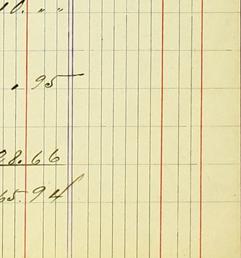 10. " "
. 95
28.66
65.94